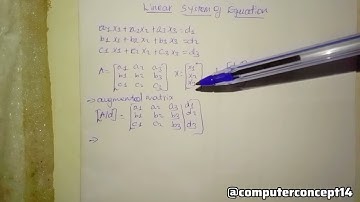 Linear System of Equation
a1x1+a2x2+a3x3=d1
b1x1+b2x2+b3x3=d2
c1x1+c2x2+c3x3=d3
A= [a1 a2 a3 x= [x1
b1 b2 b3 x2
c1 c2 c3] x3]
→ augmented matrix
[A/d] = [a1 a2 a3 | d1
b1 b2 b3 | d2
c1 c2 c3 | d3]
→
@computerconcept14